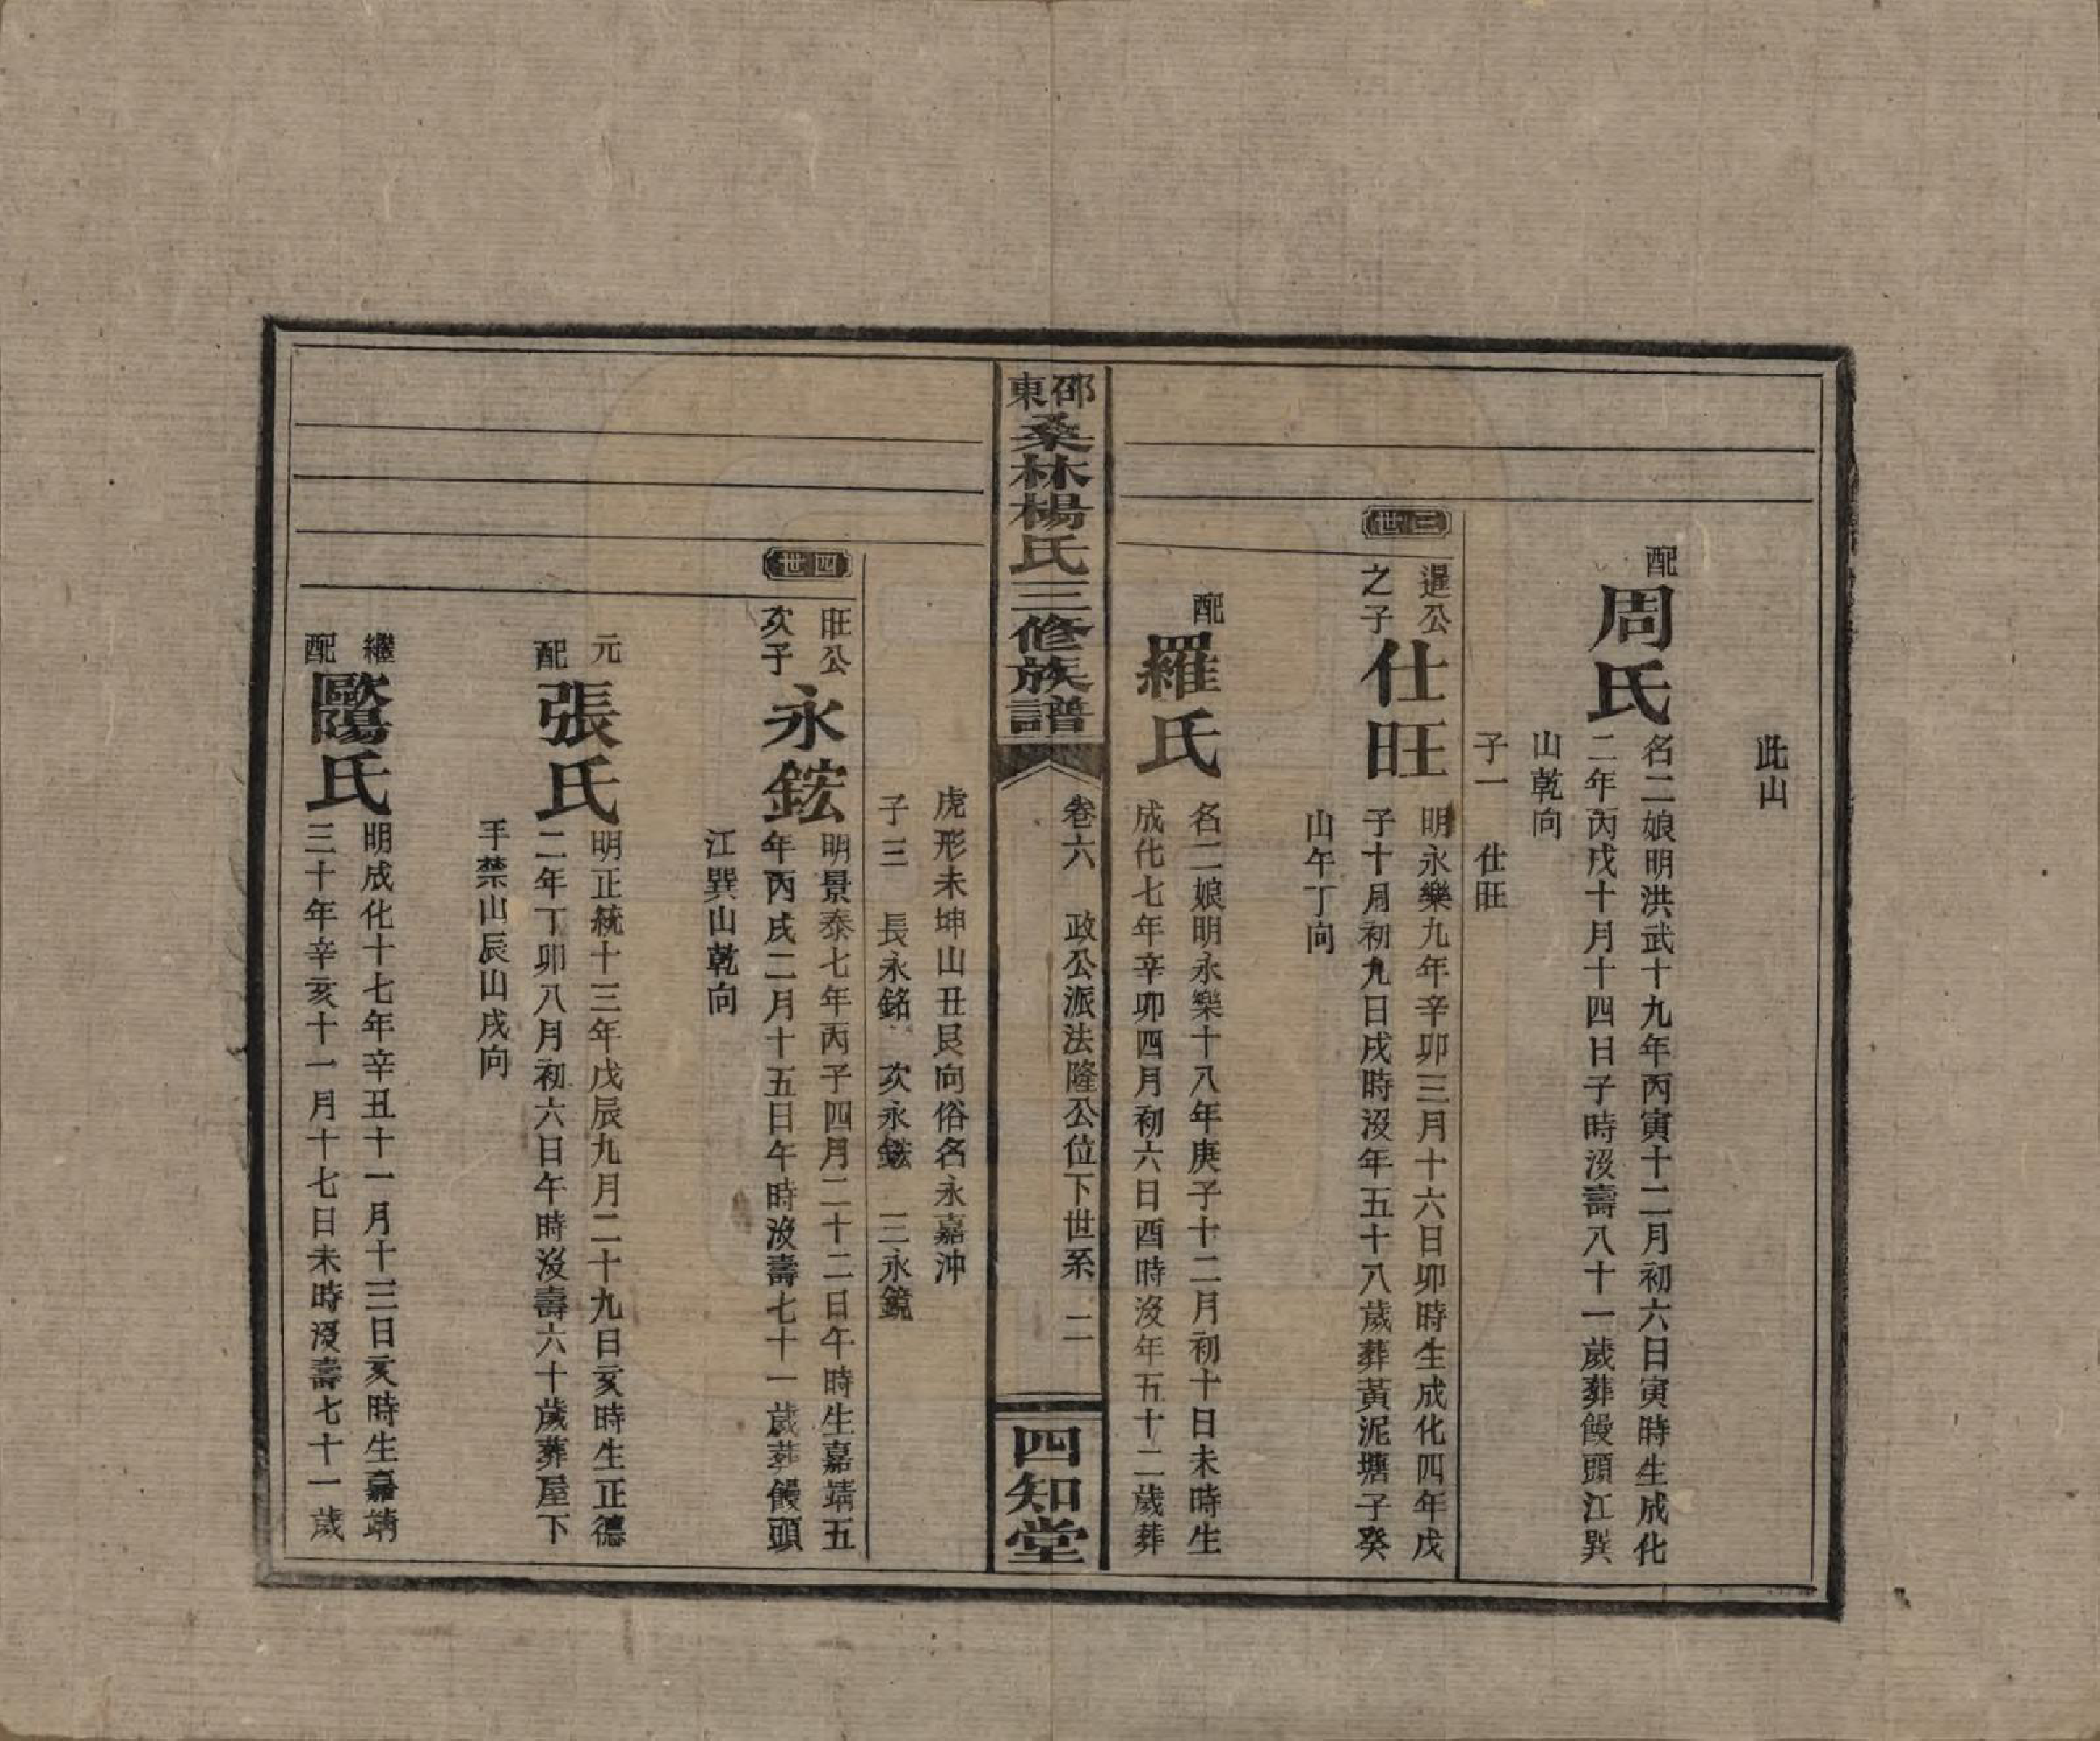 此山
配
周氏
名二娘明洪武十九年丙寅十二月初六日寅時生成化
二年丙戌十月十四日子時沒壽八十一歲葬饅頭江巽
山乾向
子一　仕旺
三世
暹公
之子
仕旺
明永樂九年辛卯三月十六日卯時生成化四年戊
子十月初九日戌時沒年五十八歲葬黃泥塘子癸
山午丁向
配
羅氏
名二娘明永樂十八年庚子十二月初十日未時生
成化七年辛卯四月初六日酉時沒年五十二歲葬
邵東桑林楊氏三修族譜
卷六　政公派法隆公位下世系　二
四知堂
虎形未坤山丑艮向俗名永嘉沖
子三　長永銘　次永鋐　三永鏡
四世
旺公
次子
永鋐
明景泰七年丙子四月二十二日午時生嘉靖五
年丙戌二月十五日午時沒壽七十一歲葬饅頭
江巽山乾向
元
配
張氏
明正統十三年戊辰九月二十九日亥時生正德
二年丁卯八月初六日午時沒壽六十歲葬屋下
手禁山辰山戌向
繼
配
歐陽氏
明成化十七年辛丑十一月十三日亥時生嘉靖
三十年辛亥十一月十七日未時沒壽七十一歲